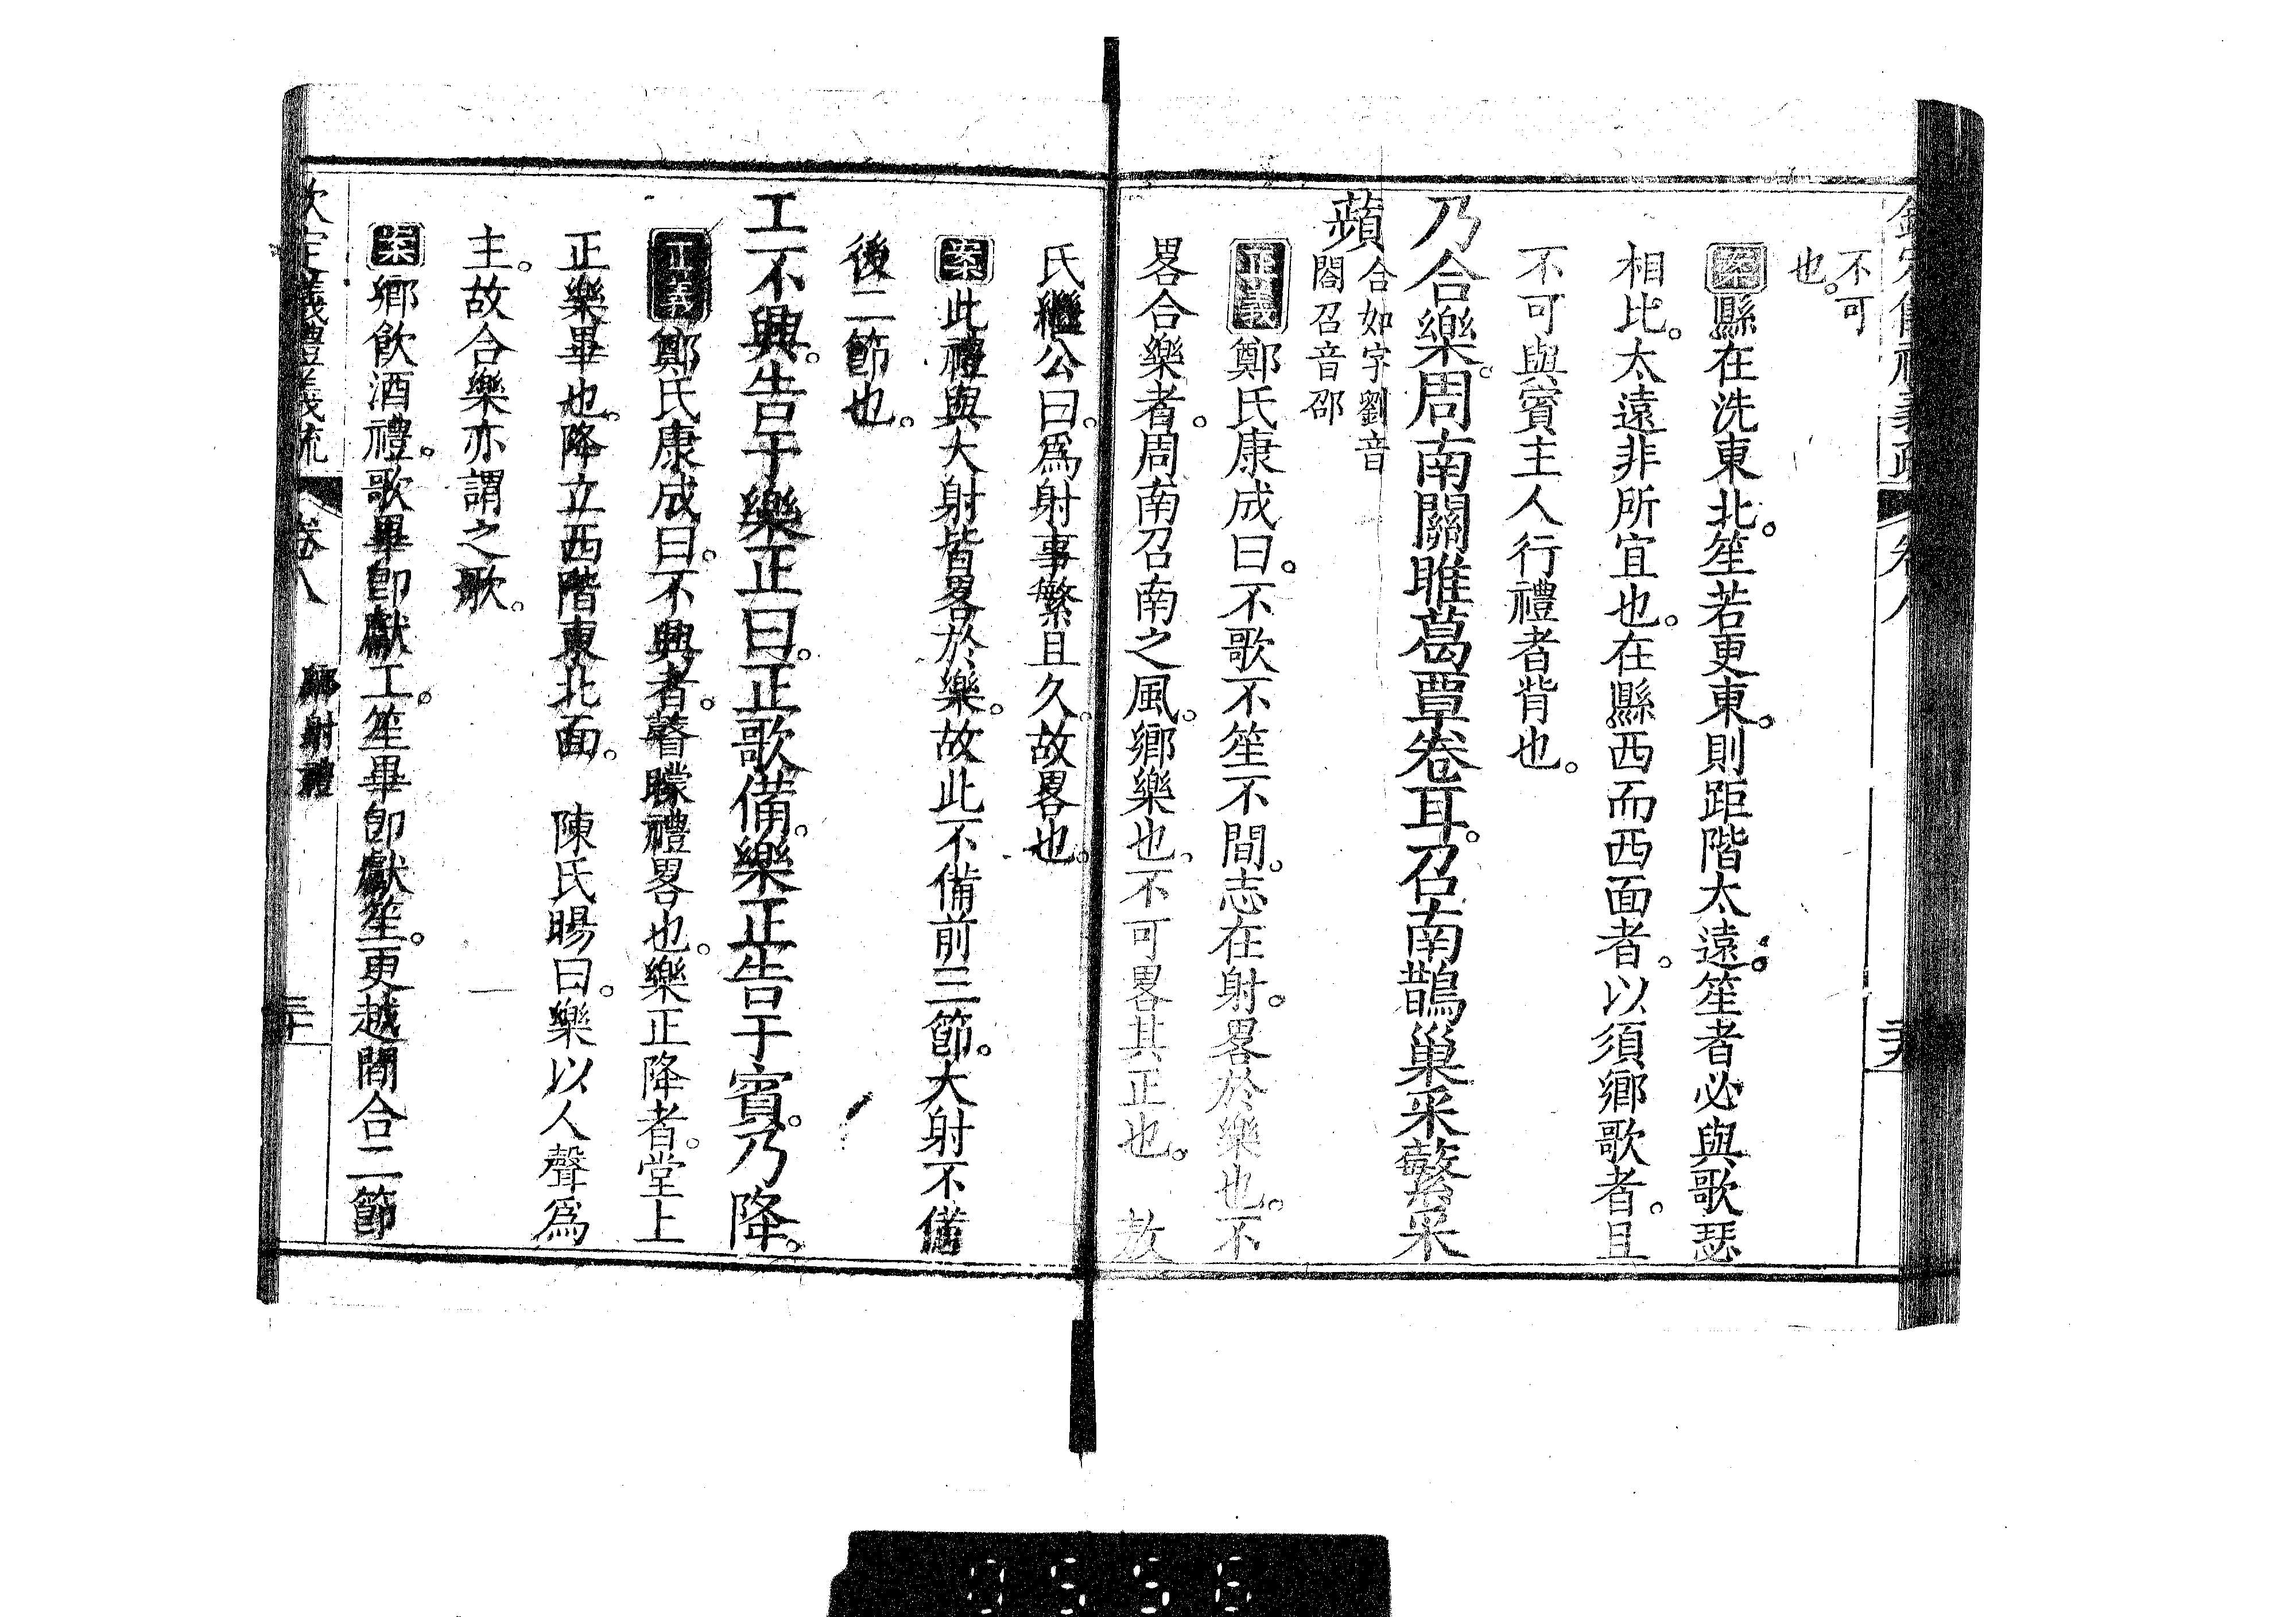 不可
也。
案縣在洗東北。笙若更東。則距階太遠。笙者必與歌瑟
相比。太遠非所宜也。在縣西而西面者。以須鄉歌者。且
不可與賓主人行禮者背也。
乃合樂。周南關雎葛覃卷耳。召南鵲巢采蘩采
蘋
合如字劉音
閤召音邵
正義鄭氏康成曰。不歌不笙不間。志在射。畧於樂也。不
畧合樂者。周南召南之風。鄉樂也。不可畧其正也。 敖
氏繼公曰。爲射事繁且久。故畧也。
案此禮與大射皆畧於樂。故此不備前三節。大射不備
後二節也。
工不興。告于樂正曰。正歌備。樂正告于賓。乃降。
正義鄭氏康成曰。不興者。瞽矇禮畧也。樂正降者。堂上
正樂畢也。降立西階東北面。 陳氏暘曰。樂以人聲爲
主。故合樂亦謂之歌。
案鄉飲酒禮。歌畢卽獻工。笙畢卽獻笙。更越間合二節
欽定儀禮義疏 卷八 鄉射禮 三十